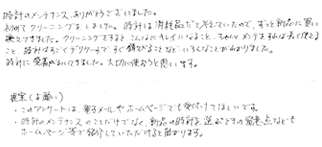 時計のメンテナンス、ありがとうございました。
初めてクリーニングをしましたが、時計は消耗品だと考えていたので、ずっと新品に買い
換えてきました。クリーニングをすると、こんなにキレイになること、ちゃんとメンテをすれば長く使える
こと、時計はすごくデリケートですぐ錆びることなど、いろいろなことがわかりました。
時計に愛着がわいてきました。大切に使おうと思います。
要望（お願い）
・このアンケートは、電子メールやホームページでも受付けてほしいです。
・時計のメンテナンスのことだけでなく、新品の時計を選ぶときの留意点なども
ホームページ等で紹介していただけると助かります。